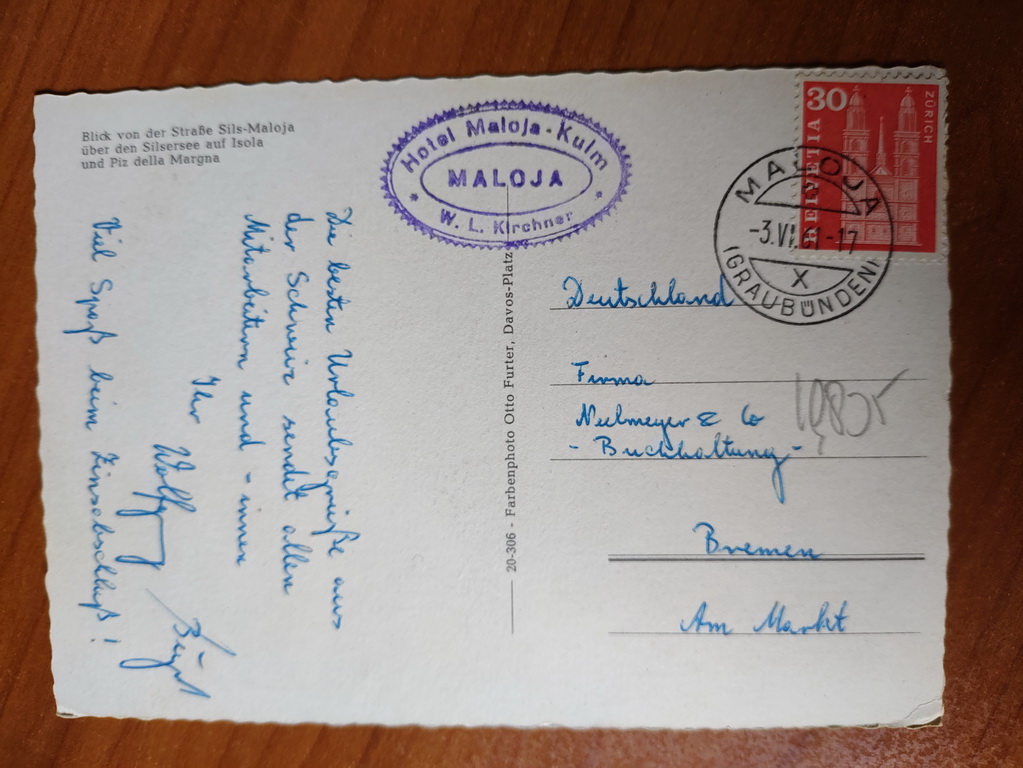 Blick von der Straße Sils-Maloja
über den Silsersee auf Isola
und Piz della Margna
Die besten Urlaubsgrüße aus
der Schweiz sendet allen
Mitarbeitern und -innen
Ihr
Wolfgang
Viel Spaß beim Zinsabschluß!
20-306 - Farbenphoto Otto Furter, Davos-Platz
Hotel Maloja-Kulm
MALOJA
W. L. Kirchner
30
HELVETIA
ZÜRICH
MALOJA
-3.VI.61-17
X
(GRAUBÜNDEN)
Deutschland
Firma
Neelmeyer & Co
- Buchhaltung -
Bremen
Am Markt